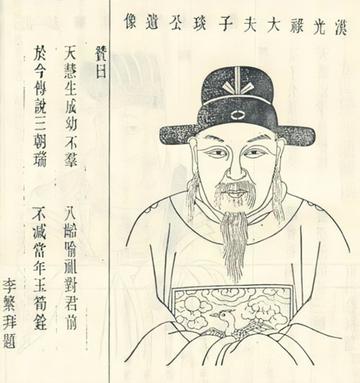 漢光祿大夫子琰公遺像
贊曰
天慧生成幼不羣 八齡喻對君前
於今傳說三朝瑞 不减當年玉筍銓
李繁拜題